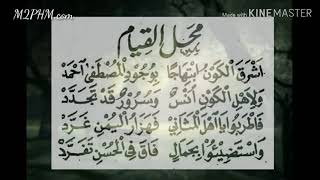 M2PHM.com
Made with KINEMASTER
محل القيام
اشرق الكون ابتهاجا بوجود المصطفى احمد
ولاهل الكون انس وسرور قد تجدد
فاطربوا يا اهل المثاني فهزار اليمن غرد
واستضيئوا بجمال فاق في الحسن تفرد